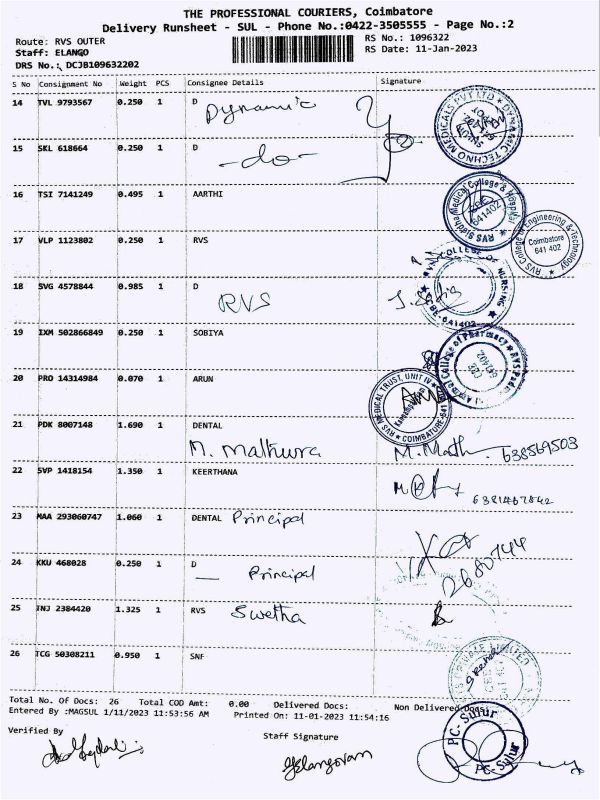 THE PROFESSIONAL COURIERS, Coimbatore
Delivery Runsheet - SUL - Phone No.:0422-3505555 - Page No.:2
Route: RVS OUTER
RS No.: 1096322
Staff: ELANGO
RS Date: 11-Jan-2023
DRS No.: DCJB109632202
S No Consignment No Weight PCS Consignee Details Signature
14 TVL 9793567 0.250 1 D Dynamic
DYNAMIC TECHNO MEDICALS PVT LTD
15 SKL 618664 0.250 1 D -do-
16 TSI 7141249 0.495 1 AARTHI
RVS Siddha Medical College & Hospital 641402
17 VLP 1123802 0.250 1 RVS
RVS College of Engineering & Technology Coimbatore 641 402
18 SVG 4578844 0.985 1 D RVS
COLLEGE OF NURSING 641402
19 IXM 502866849 0.250 1 SOBIYA
College of Pharmacy
20 PRO 14314984 0.070 1 ARUN
RVS MEDICAL TRUST, UNIT IV COIMBATORE-641
21 PDK 8007148 1.690 1 DENTAL
M. Mathura 638569503
22 SVP 1418154 1.350 1 KEERTHANA
6381467842
23 MAA 293060747 1.060 1 DENTAL Principal
24 KKU 468028 0.250 1 D
Principal 2680744
25 INJ 2384420 1.325 1 RVS Swetha
26 TCG 50308211 0.950 1 SNF
PRIVATE LIMITED
Total No. Of Docs: 26 Total COD Amt: 0.00 Delivered Docs: Non Delivered Docs:
Entered By :MAGSUL 1/11/2023 11:53:56 AM Printed On: 11-01-2023 11:54:16
Verified By
Staff Signature
PC-Sulur
PC-Sulur